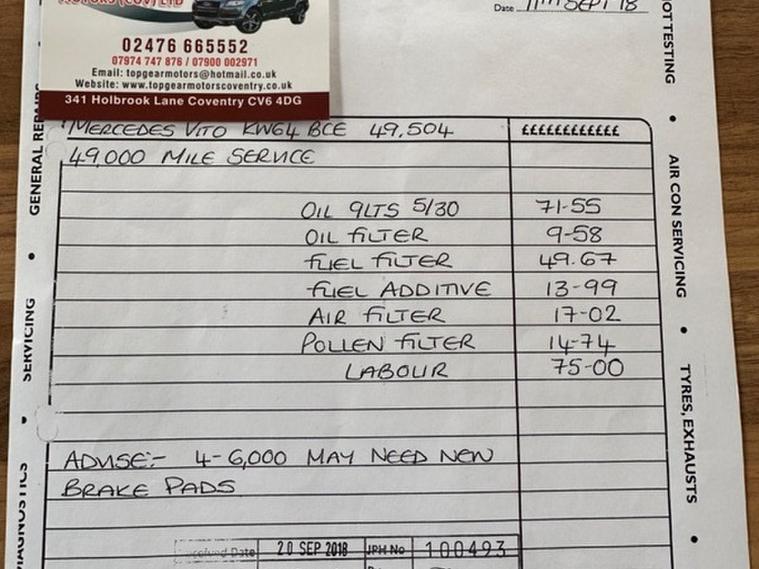 MOTORS (COV) LTD
02476 665552
07974 747 876 / 07900 002971
Email: topgearmotors@hotmail.co.uk
Website: www.topgearmotorscoventry.co.uk
341 Holbrook Lane Coventry CV6 4DG
Date 11TH SEPT 18
MERCEDES VITO KW64 BCE 49,504 ££££££££££££
49,000 MILE SERVICE
OIL 9LTS 5/30 71-55
OIL FILTER 9-58
FUEL FILTER 49.67
FUEL ADDITIVE 13-99
AIR FILTER 17-02
POLLEN FILTER 14-74
LABOUR 75-00
ADVISE:- 4-6,000 MAY NEED NEW
BRAKE PADS
Received Date 20 SEP 2018 JPH No 100493
GENERAL REPAIRS • SERVICING • DIAGNOSTICS
MOT TESTING • AIR CON SERVICING • TYRES, EXHAUSTS •